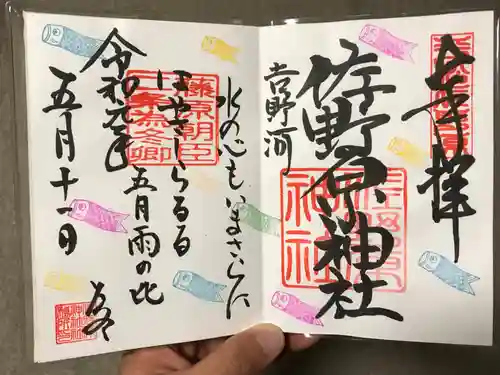 奉拝
佐野原神社
吉野河
水の心もいまさらに
はやさしらるる
五月雨の比
為冬
令和元年
五月十一日
藤原朝臣
二条為冬卿